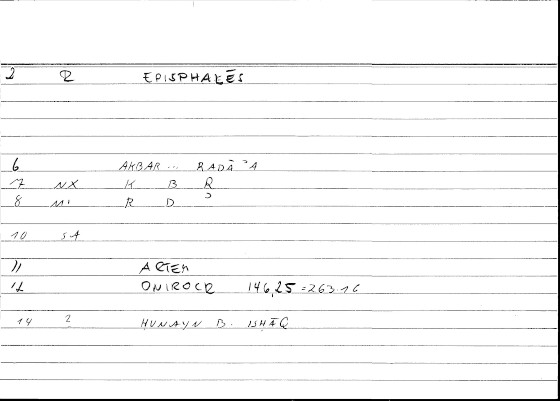 2 R EPISPHALĒS
6 AKBAR ... RADĀʾA
7 NX K B R
8 M1 R D ʾ
10 SA
11 ARTEM
12 ONIROCR 146,25=263.16
14 2 HUNAYN B. ISHĀQ